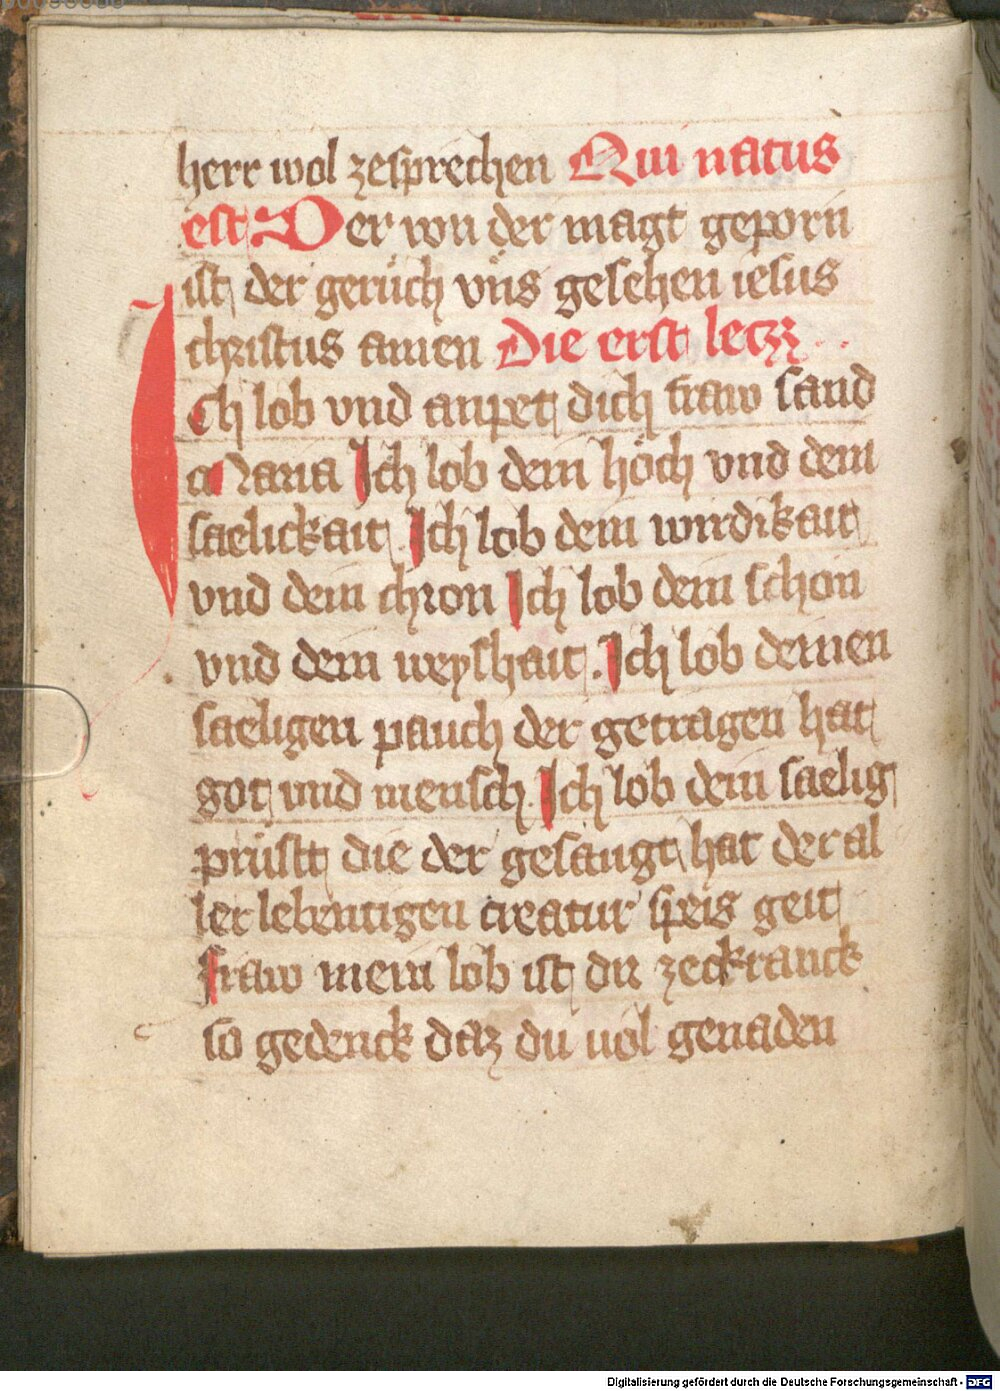 herr wol zesprechen Qui natus
est Der von der magt geporn
ist der geruͤch vns gesehen iesus
christus amen Die erst leczz
Ich lob vnd anpet dich fraw sand
Maria Ich lob dein hoͤch vnd dein
saelickait. Ich lob dein wirdikait
vnd dein chron Ich lob dein schon
vnd dein weyshait. Ich lob deinen
saeligen pauch der getragen hat
got vnd mensch. Ich lob dein saelig
prüstt die der gesaugt hat der al
ler lebentigen creatur speis geit
fraw mein lob ist dir zeckranck
so gedenck daz du uol genaden
Digitalisierung gefördert durch die Deutsche Forschungsgemeinschaft - DFG